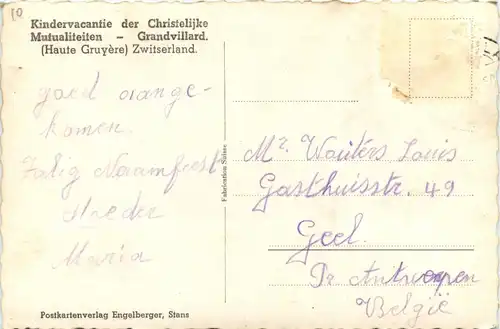 Kindervacantie der Christelijke
Mutualiteiten - Grandvillard.
(Haute Gruyère) Zwitserland.
goed aange-
komen.
Zalig Naamfeest
Moeder
Maria
Fabrication Suisse
Mr. Wouters Louis
Gasthuisstr. 49
Geel.
Pr Antwerpen
België
Postkartenverlag Engelberger, Stans